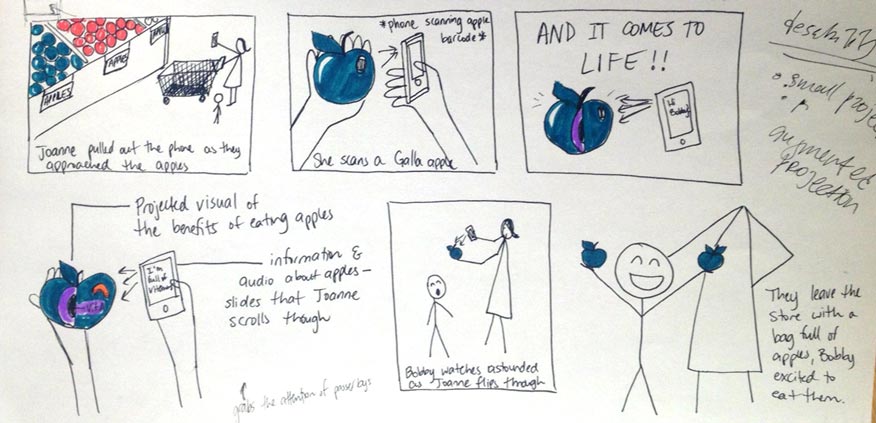 APPLES
APPLES
Joanne pulled out the phone as they
approached the apples
*phone scanning apple
barcode*
She scans a Galla apple
AND IT COMES TO
LIFE!!
Hi
Bobby!
small
augmented
projection
Projected visual of
the benefits of eating apples
I'm
full of
vitamins
information &
audio about apples –
slides that Joanne
scrolls though
grabs the attention of passer bys
Bobby watches astounded
as Joanne flips through
They leave the
store with a
bag full of
apples, Bobby
excited to
eat them.